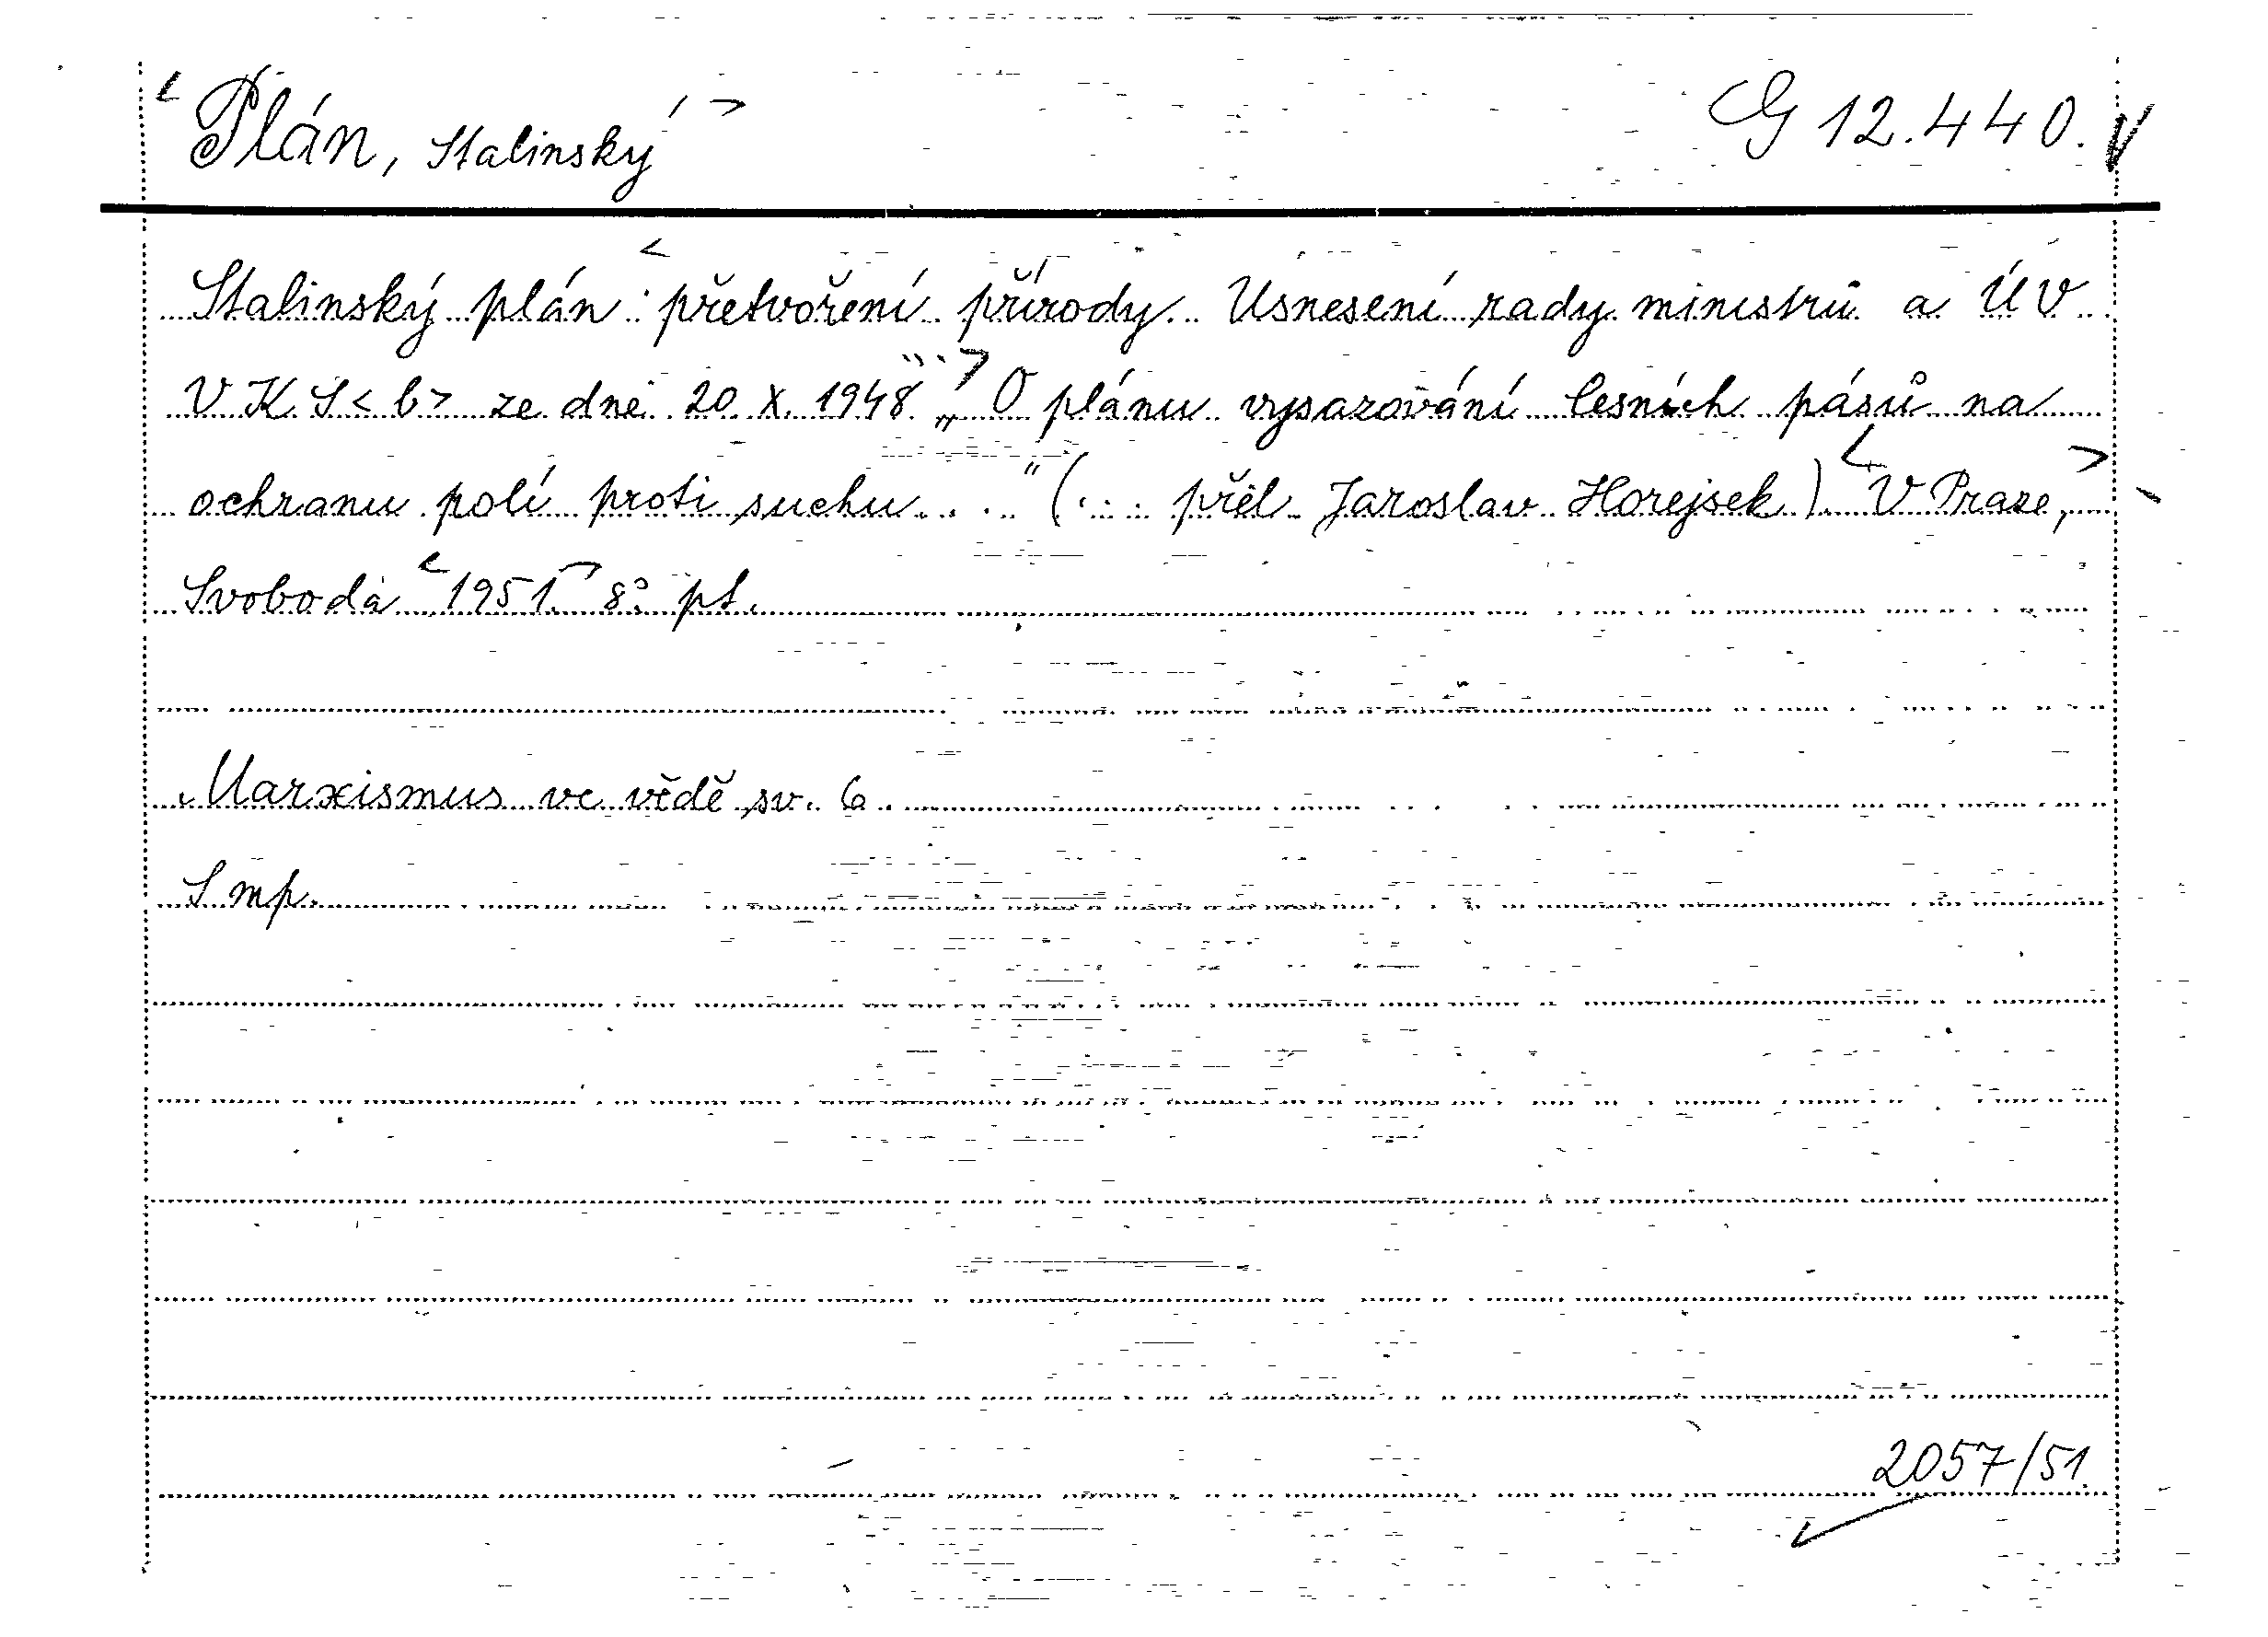 Plán, Stalinský
G 12.440.
Stalinský plán přetvoření přírody. Usnesení rady ministrů a ÚV
VKS<b> ze dne 20.X.1948 „O plánu vysazování lesních pásů na
ochranu polí proti suchu...“ (... přel. Jaroslav Horejsek). V Praze,
Svoboda 1951. 8° pt.
Marxismus ve vědě sv. 6.
S mp.
2057/51.